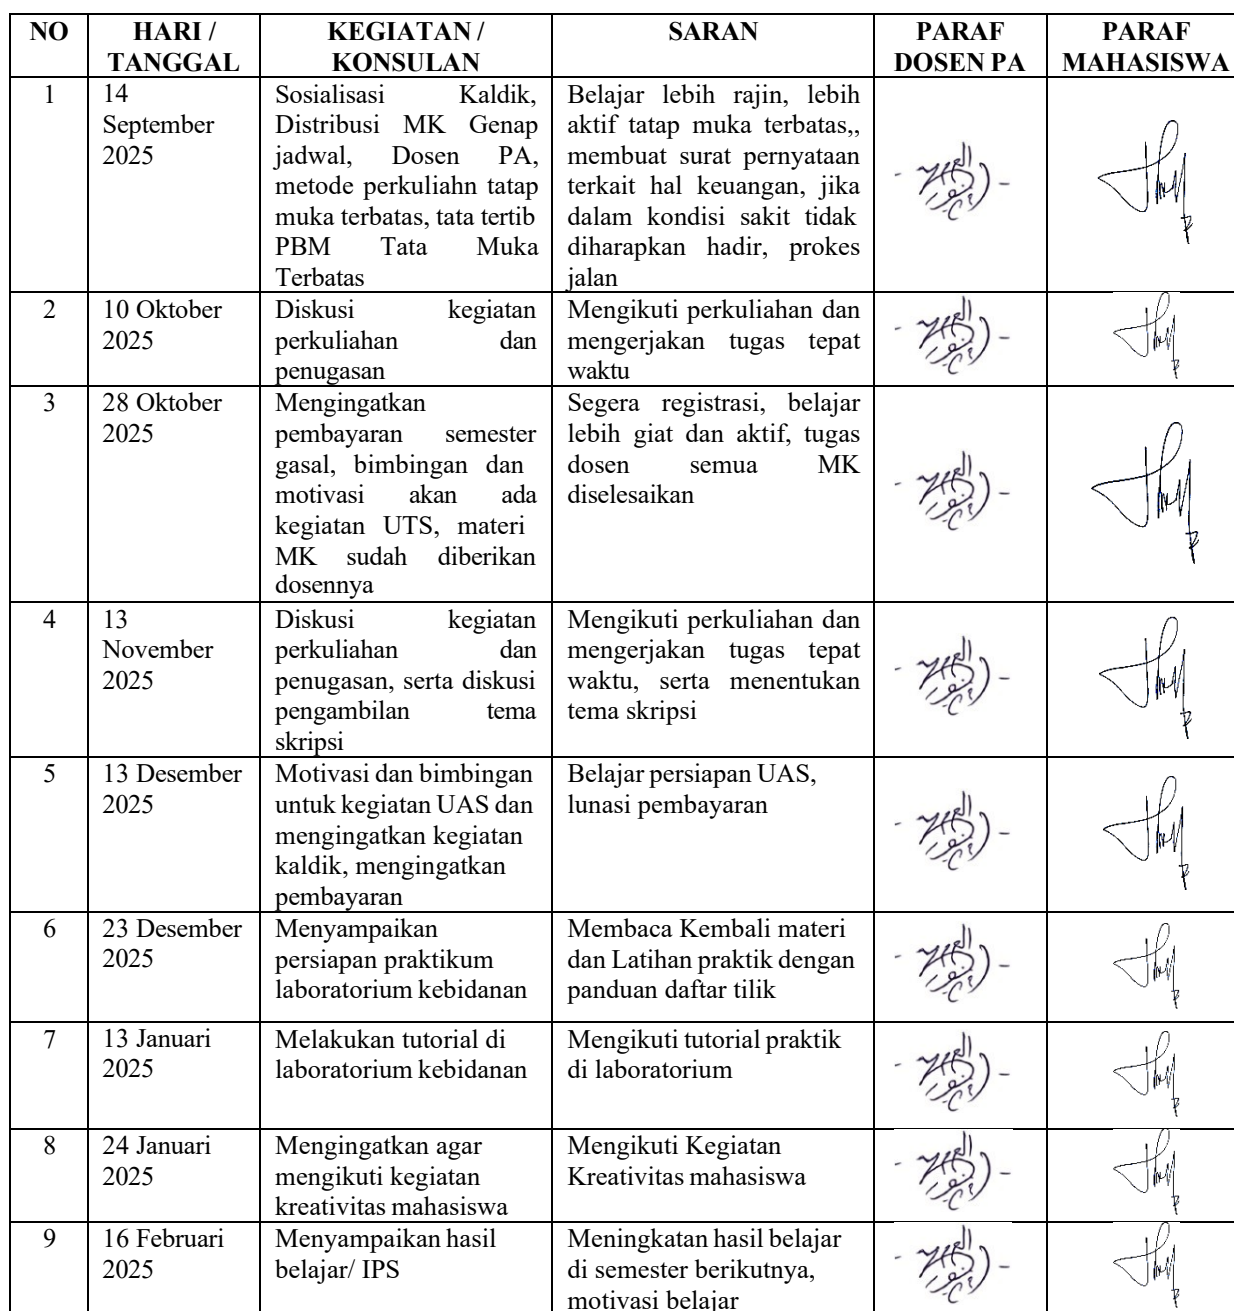 NO HARI / TANGGAL KEGIATAN / KONSULAN SARAN PARAF DOSEN PA PARAF MAHASISWA
1
14
September
2025
Sosialisasi Kaldik,
Distribusi MK Genap
jadwal, Dosen PA,
metode perkuliahn tatap
muka terbatas, tata tertib
PBM Tata Muka
Terbatas
Belajar lebih rajin, lebih
aktif tatap muka terbatas,,
membuat surat pernyataan
terkait hal keuangan, jika
dalam kondisi sakit tidak
diharapkan hadir, prokes
jalan
2
10 Oktober
2025
Diskusi kegiatan
perkuliahan dan
penugasan
Mengikuti perkuliahan dan
mengerjakan tugas tepat
waktu
3
28 Oktober
2025
Mengingatkan
pembayaran semester
gasal, bimbingan dan
motivasi akan ada
kegiatan UTS, materi
MK sudah diberikan
dosennya
Segera registrasi, belajar
lebih giat dan aktif, tugas
dosen semua MK
diselesaikan
4
13
November
2025
Diskusi kegiatan
perkuliahan dan
penugasan, serta diskusi
pengambilan tema
skripsi
Mengikuti perkuliahan dan
mengerjakan tugas tepat
waktu, serta menentukan
tema skripsi
5
13 Desember
2025
Motivasi dan bimbingan
untuk kegiatan UAS dan
mengingatkan kegiatan
kaldik, mengingatkan
pembayaran
Belajar persiapan UAS,
lunasi pembayaran
6
23 Desember
2025
Menyampaikan
persiapan praktikum
laboratorium kebidanan
Membaca Kembali materi
dan Latihan praktik dengan
panduan daftar tilik
7
13 Januari
2025
Melakukan tutorial di
laboratorium kebidanan
Mengikuti tutorial praktik
di laboratorium
8
24 Januari
2025
Mengingatkan agar
mengikuti kegiatan
kreativitas mahasiswa
Mengikuti Kegiatan
Kreativitas mahasiswa
9
16 Februari
2025
Menyampaikan hasil
belajar/ IPS
Meningkatan hasil belajar
di semester berikutnya,
motivasi belajar